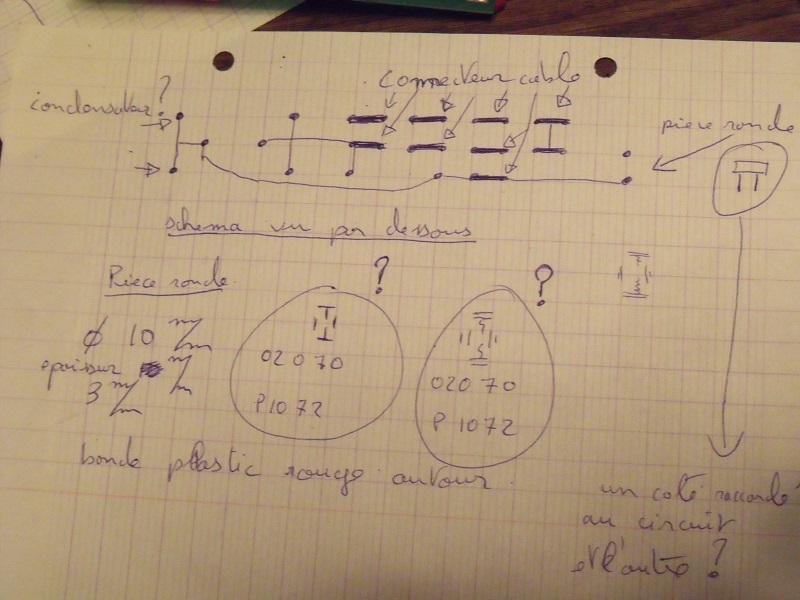 connecteur cable
condensateur ?
piece ronde
schema vu par dessous
Piece ronde
?
?
ø 10 m/m
epaisseur m/m
3 m/m
02 0 70
P 10 72
020 70
P 1072
bande plastic rouge autour.
un coté raccordé
au circuit
et l'autre ?